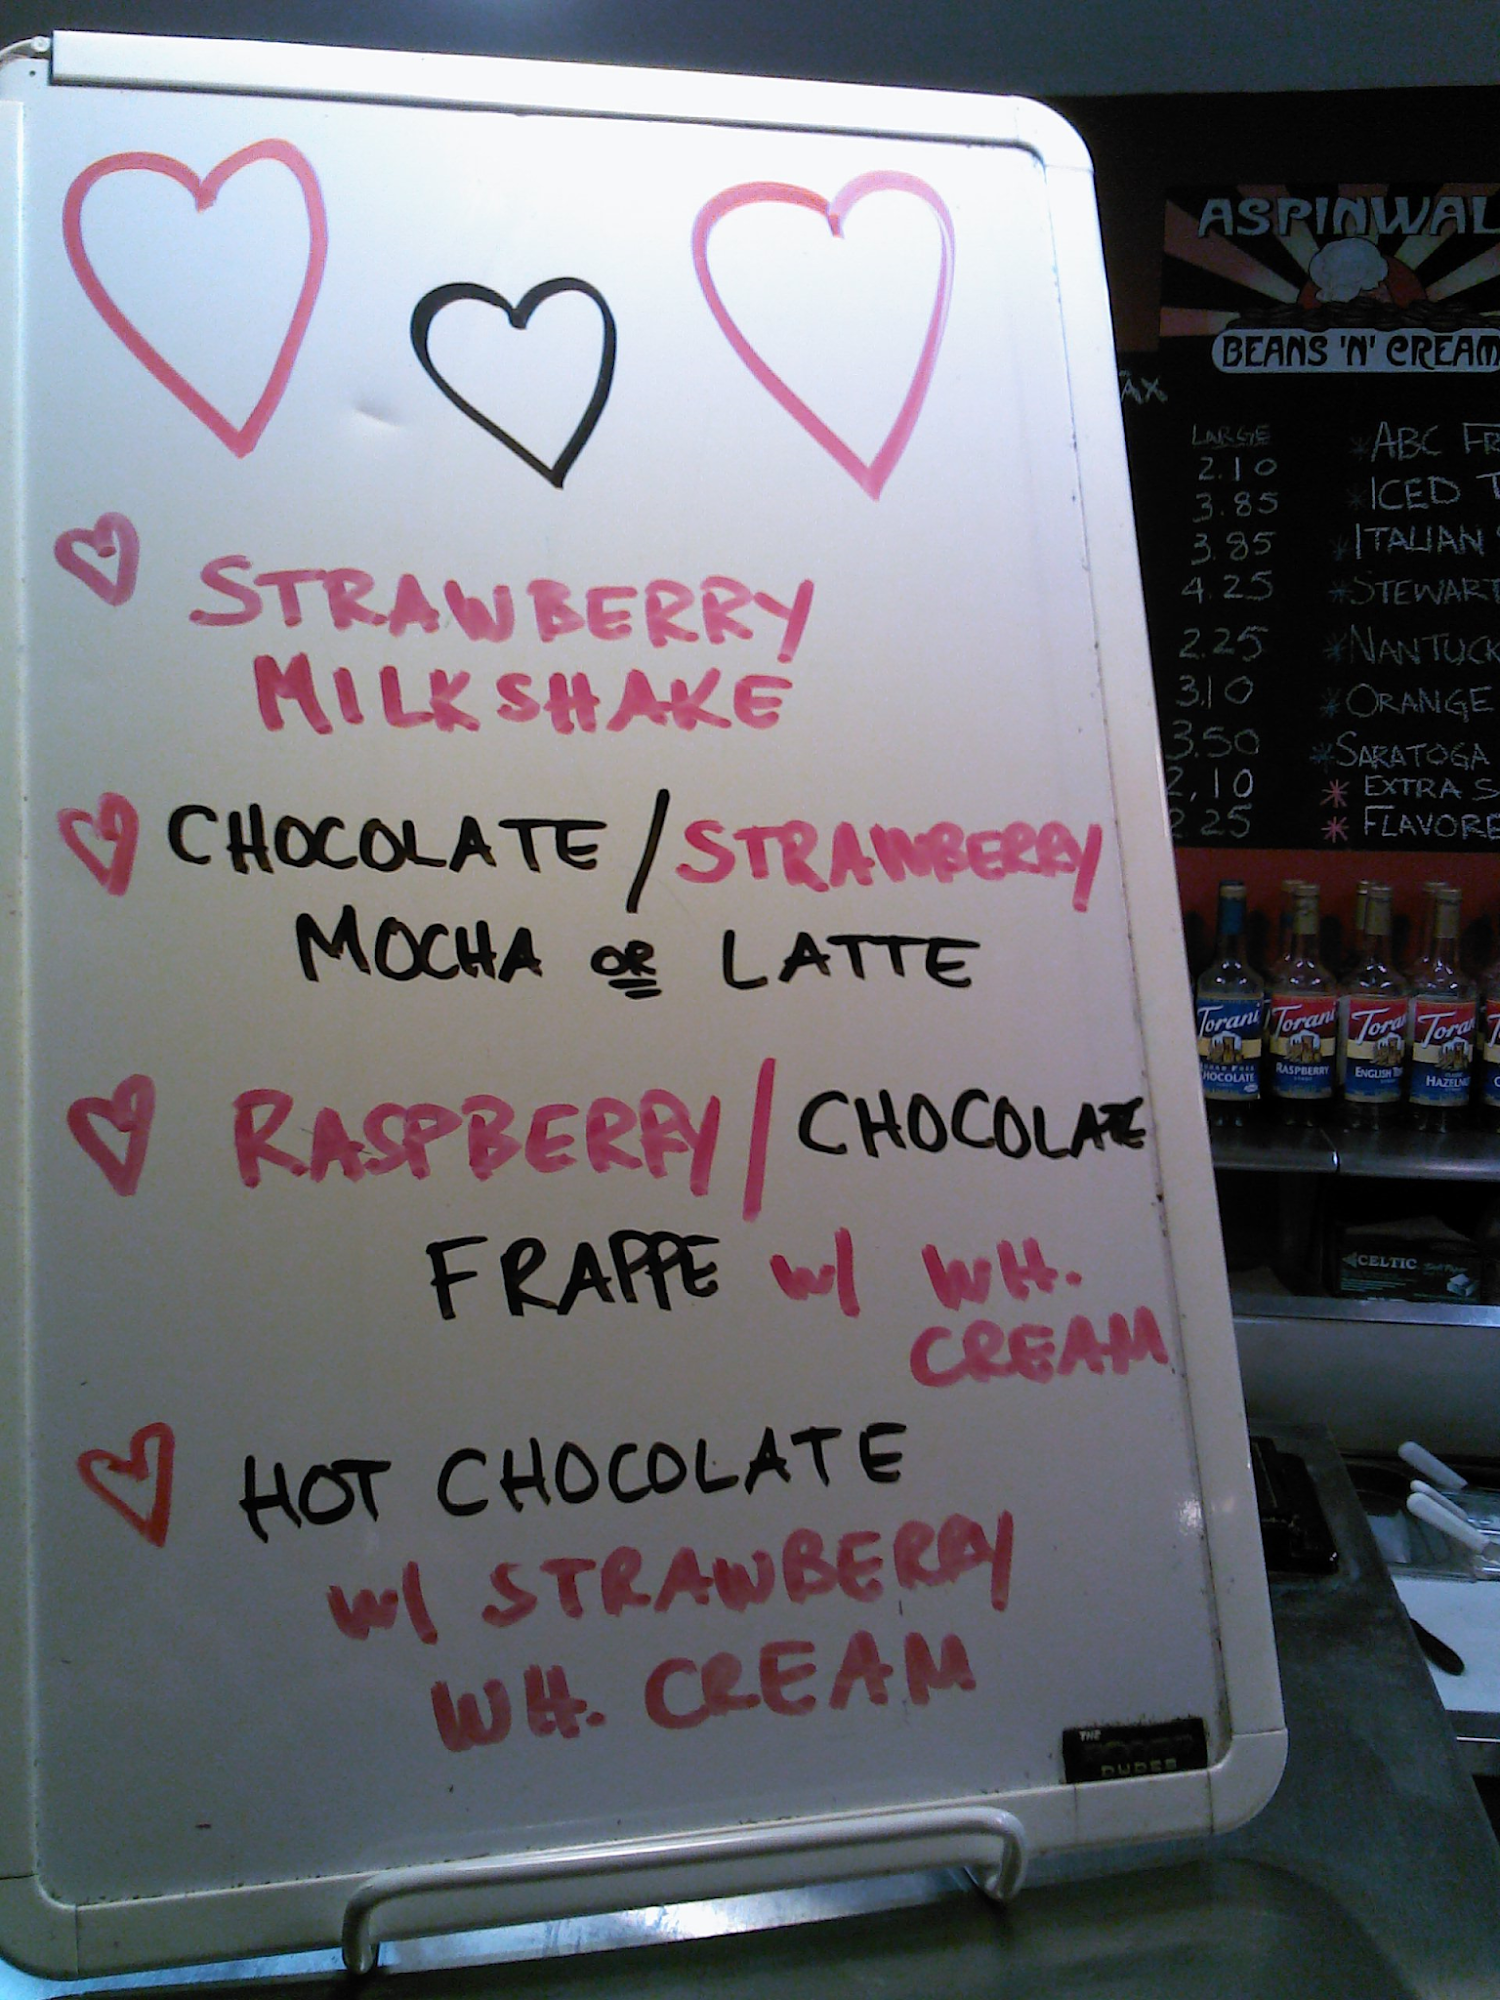 STRAWBERRY
MILKSHAKE
CHOCOLATE/STRAWBERRY
MOCHA OR LATTE
RASPBERRY/CHOCOLATE
FRAPPE w/ WH.
CREAM
HOT CHOCOLATE
w/ STRAWBERRY
WH. CREAM
THE
DUDES
ASPINWAL
BEANS 'N' CREAM
AX
LARGE
2.10
3.85
3.85
4.25
2.25
3.10
3.50
2.10
2.25
*ABC FR
*ICED T
*ITALIAN
*STEWART
*NANTUCK
*ORANGE
*SARATOGA
* EXTRA S
* FLAVORE
Torani
CHOCOLATE
Torani
RASPBERRY
Tora
ENGLISH TO
Tora
HAZELNU
CELTIC